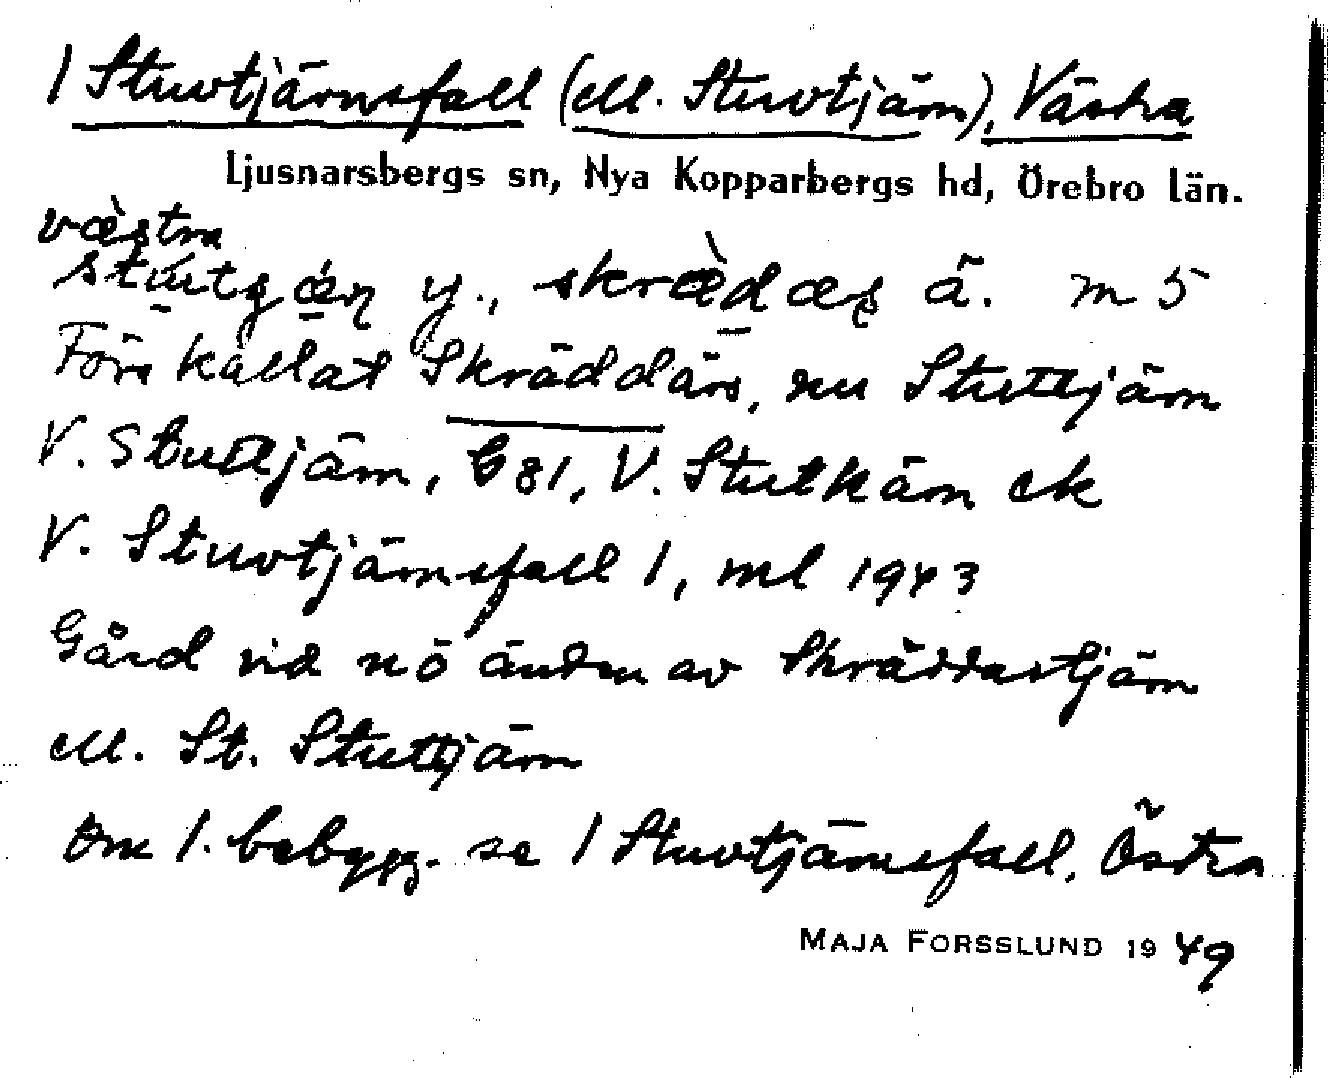 1 Stuvtjärnsfall (ell. Stuvtjärn), Västra
Ljusnarsbergs sn, Nya Kopparbergs hd, Örebro län.
væ̀stra
y., skræ̀dæş ä. m 5
Förr kallat Skräddärs, nu Stuttjärn
V. Stuttjärn, G 81, V. Stutkärn ek
V. Stuvtjärnsfall 1, ml 1943
Gård vid nö änden av Skräddastjärn
ell. St. Stuttjärn
Om 1. bebygg. se 1 Stuvtjärnsfall, Östra
MAJA FORSSLUND 1949